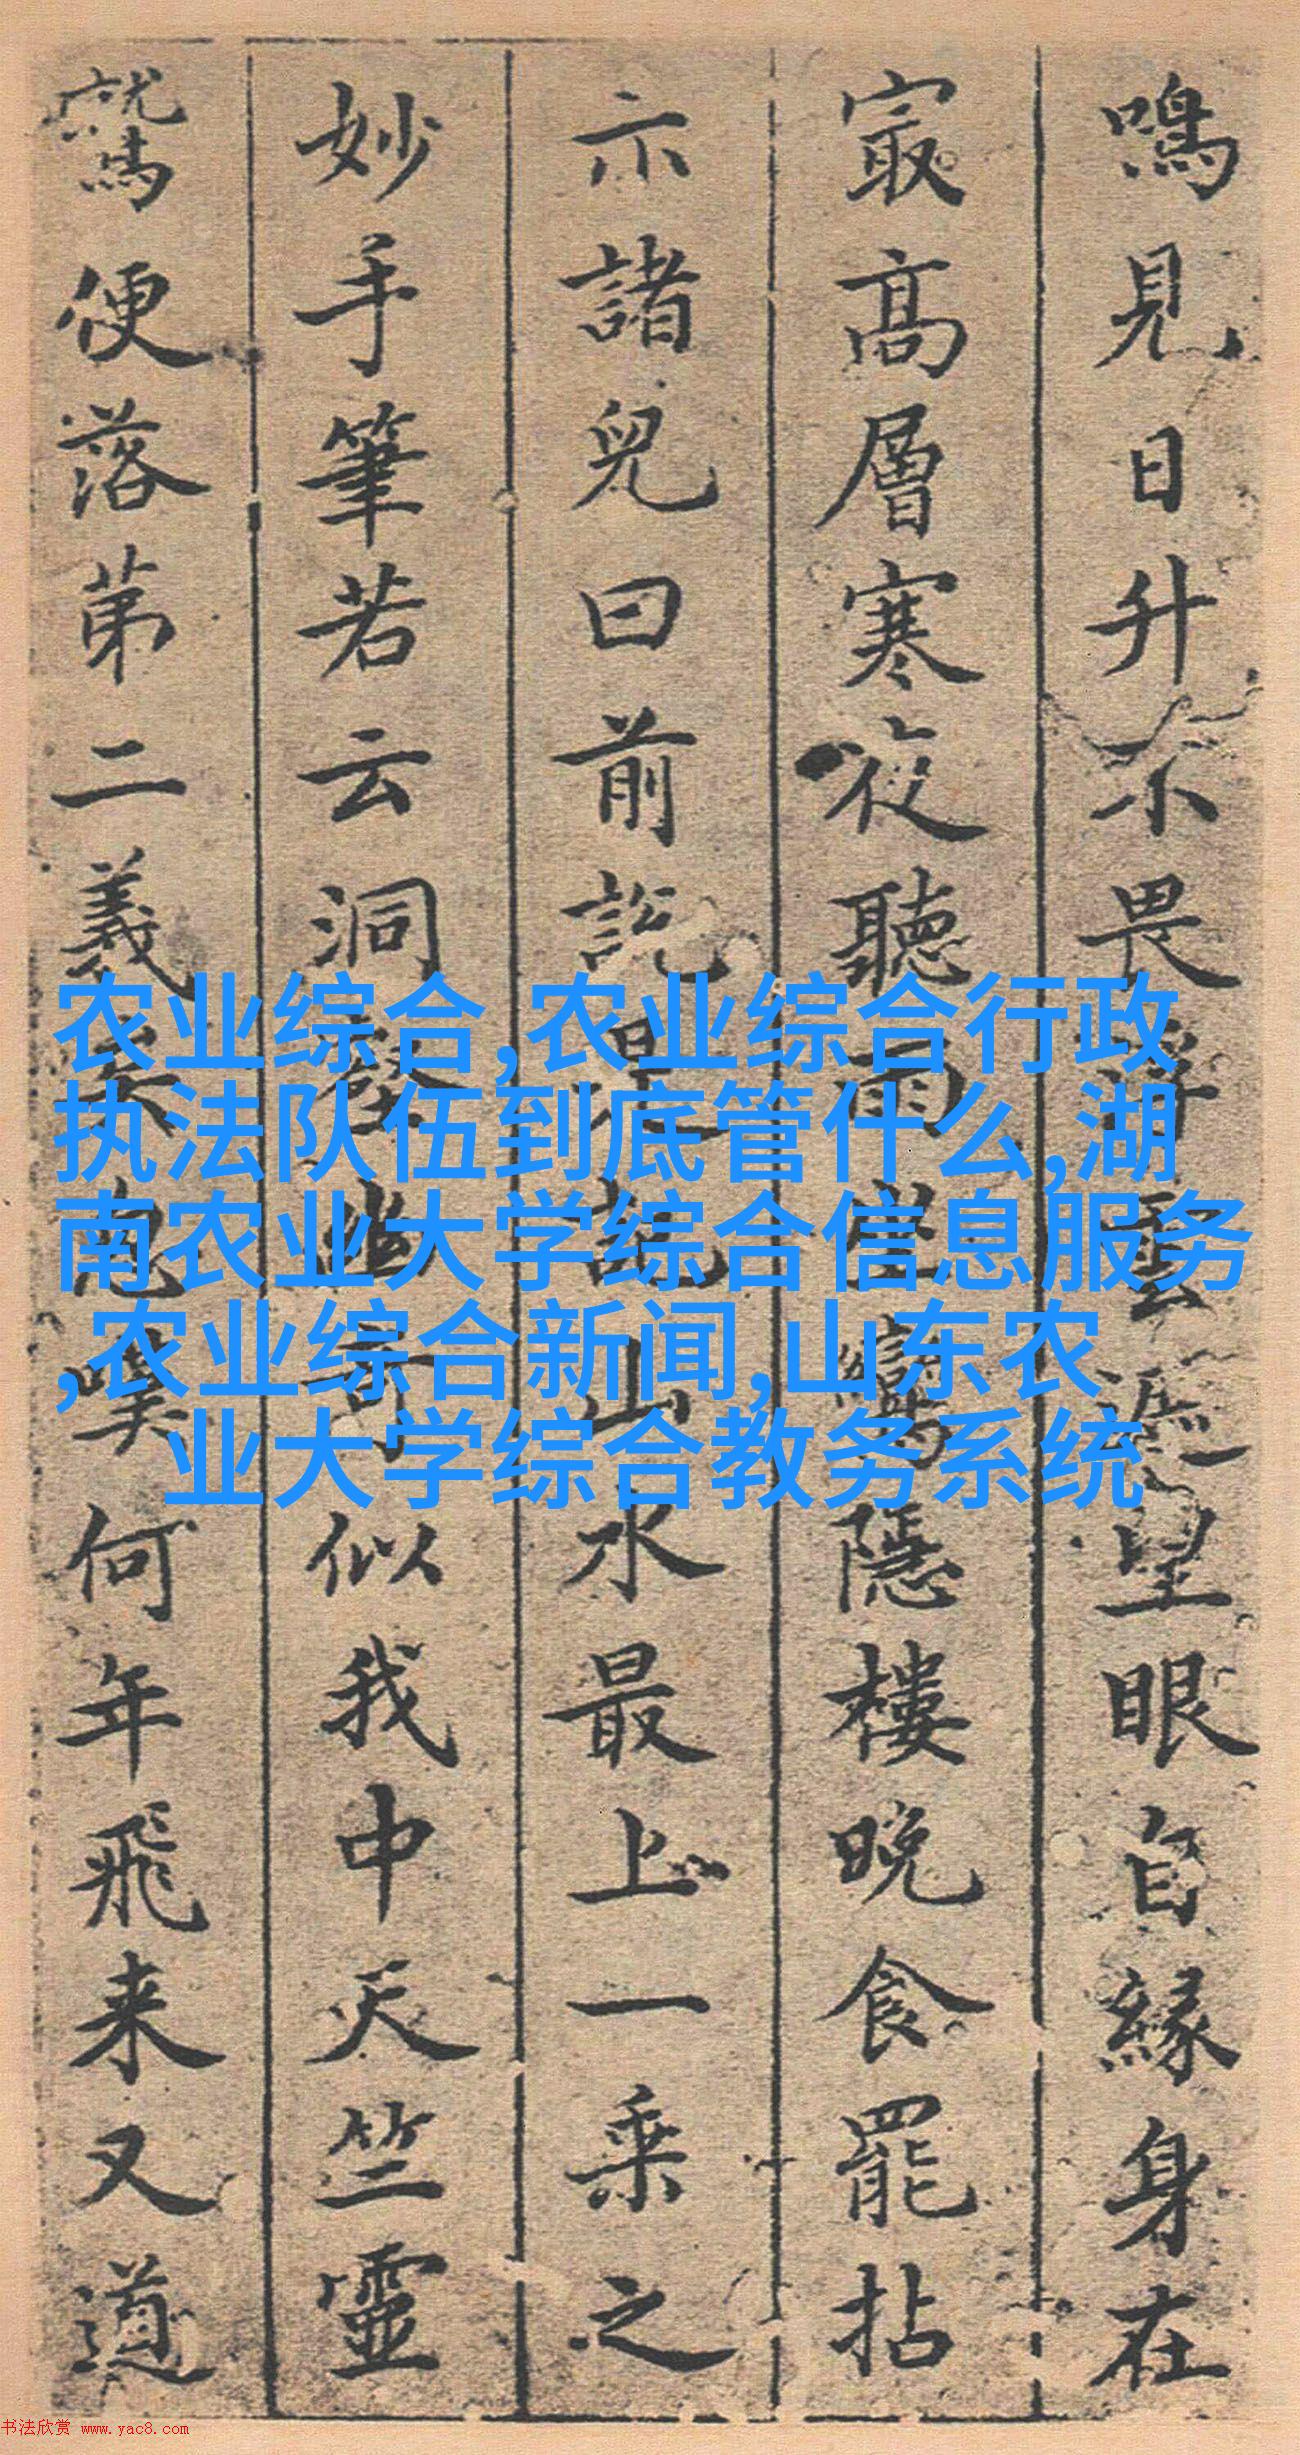 鳴見日升不畏浮雲遮望眼自緣身在
㝡高層寒夜聽雨隱樓晚食罷拈
示諸兒曰前說山水最上一乘之
妙手筆若云洞壑幽奇似我中天竺靈
鷲便落苐二義嘆何年飛来又道
农业综合,农业综合行政
执法队伍到底管什么,湖
南农业大学综合信息服务
,农业综合新闻,山东农
业大学综合教务系统
书法欣赏 www.yac8.com